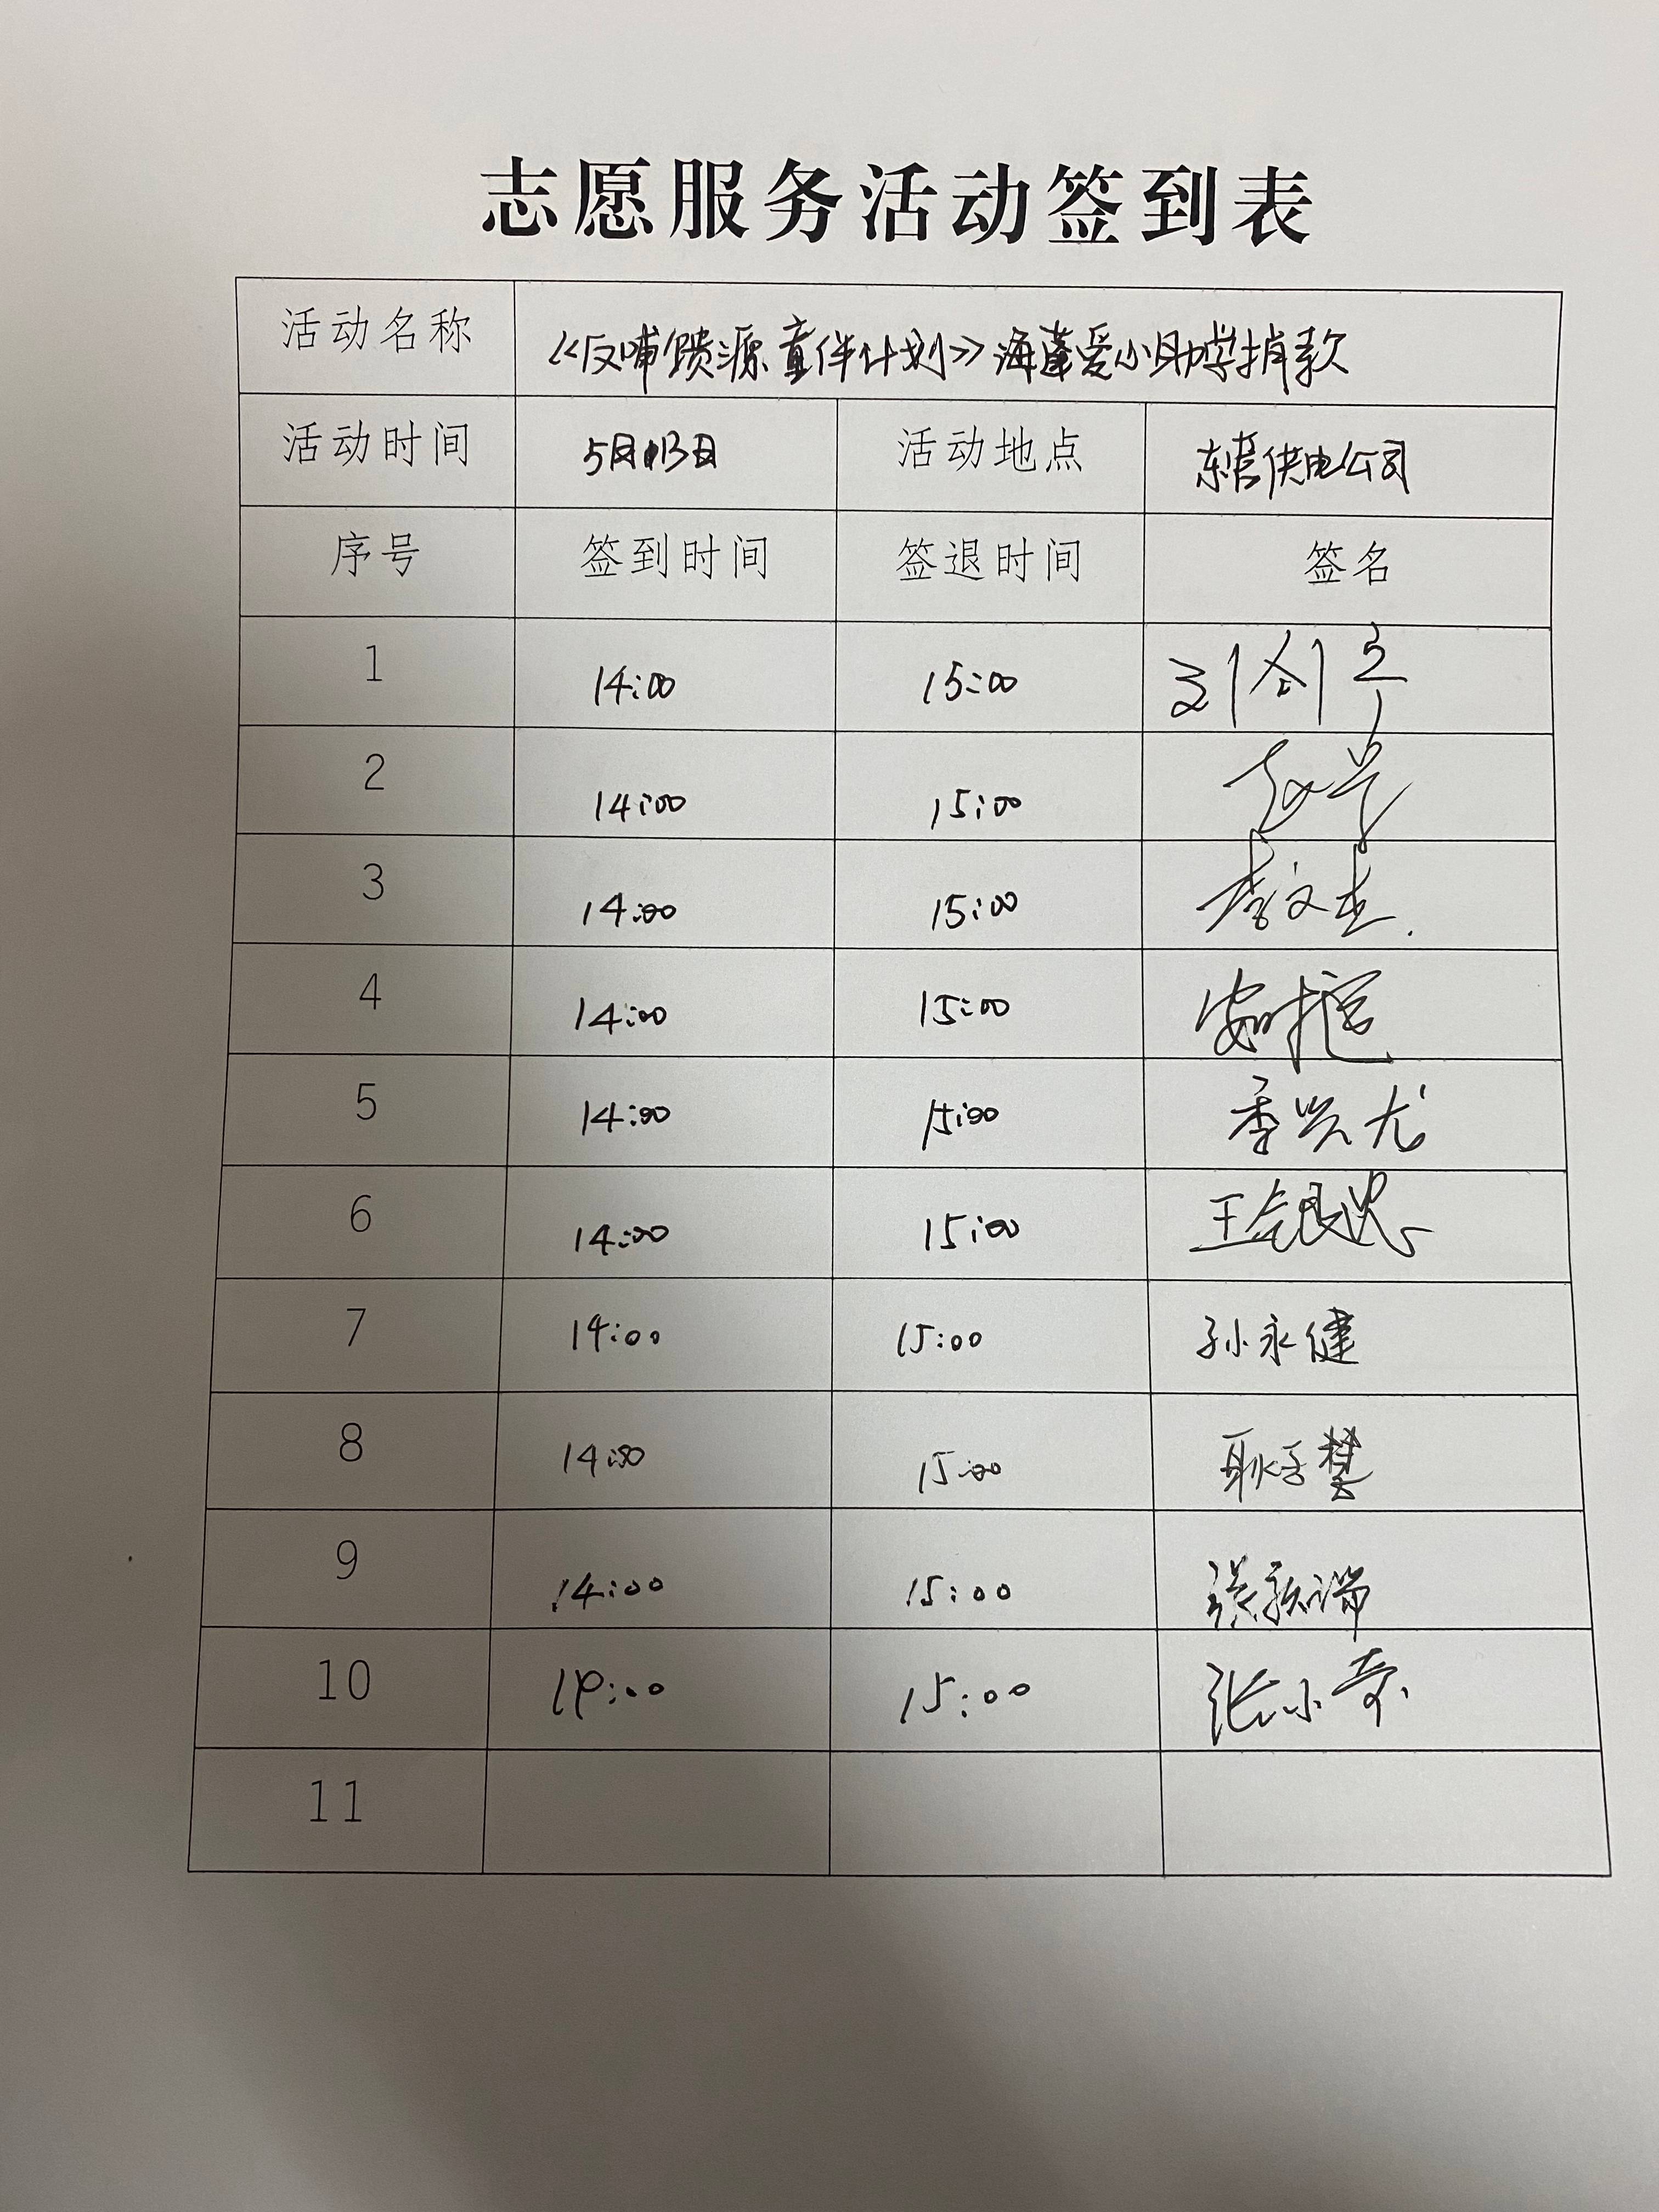 志愿服务活动签到表
活动名称 《反哺馈源 童伴计划》海蓬爱心助学捐款
活动时间 5月13日 活动地点 东营供电公司
序号 签到时间 签退时间 签名
1 14:00 15:00
2 14:00 15:00
3 14:00 15:00 李文杰
4 14:00 15:00
5 14:00 15:00 季兴龙
6 14:00 15:00
7 14:00 15:00 孙永健
8 14:00 15:00
9 14:00 15:00
10 14:00 15:00 张小奇
11